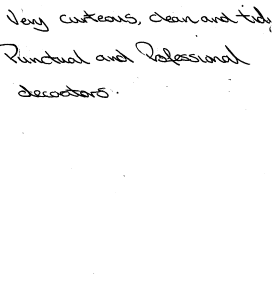 Very curteous, clean and tidy
Punctual and Professional
decoators.